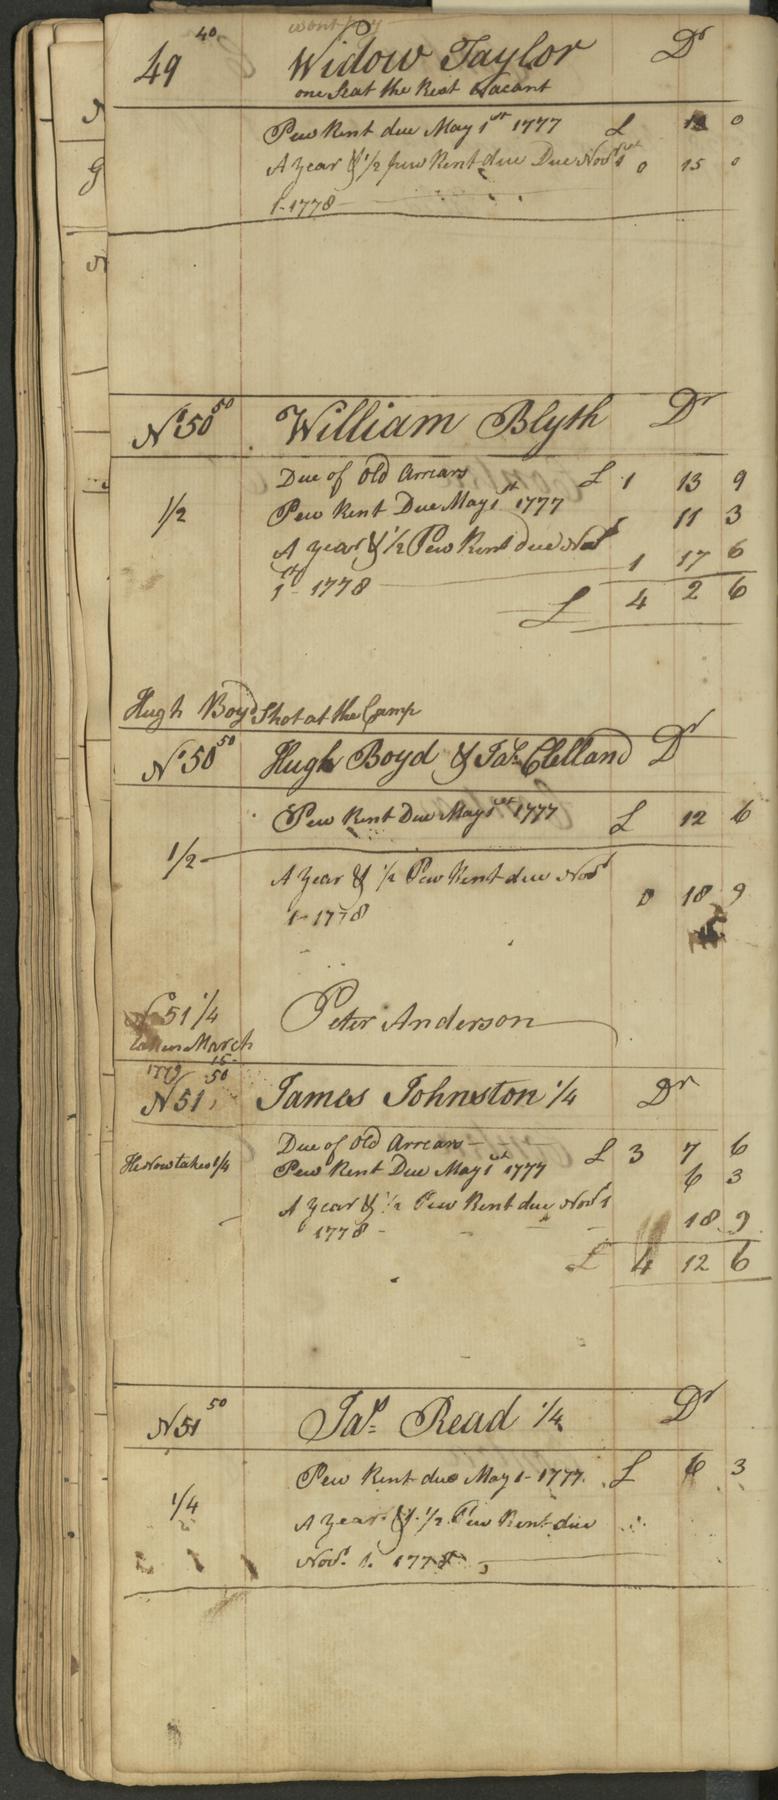 wont pay
49 40 Widow Taylor Dr
one Seat the Rest Vacant
Pew Rent due May 1st 1777 £ 0
A Year & 1/2 pew Rent due Due Novr 1 0 15 0
1-1778
No 50 50 William Blyth Dr
Due of Old Arrears £ 1 13 9
1/2 Pew Rent Due May 1st 1777 11 3
A year & 1/2 Pew Rent due Novr 1 17 6
1st 1778 £ 4 2 6
Hugh Boyd Shot at the Camp
No 50 50 Hugh Boyd & Jas. Clelland Dr
Pew Rent Due May 1st 1777 £ 12 6
1/2
A Year & 1/2 Pew Rent due Novr 0 18 9
1-1778
No 51 1/4 Peter Anderson
taken March
15
1779 50
N 51 James Johnston 1/4 Dr
Due of Old Arrears £ 3 7 6
He Now takes 1/4 Pew Rent Due May 1st 1777 6 3
A year & 1/2 Pew Rent due Novr 1
1778 18 9
£ 4 12 6
N 51 50 Jas. Read 1/4 Dr
Pew Rent due May 1-1777 £ 6 3
1/4 A year & 1/2 Pew Rent due
Novr. 1. 1778